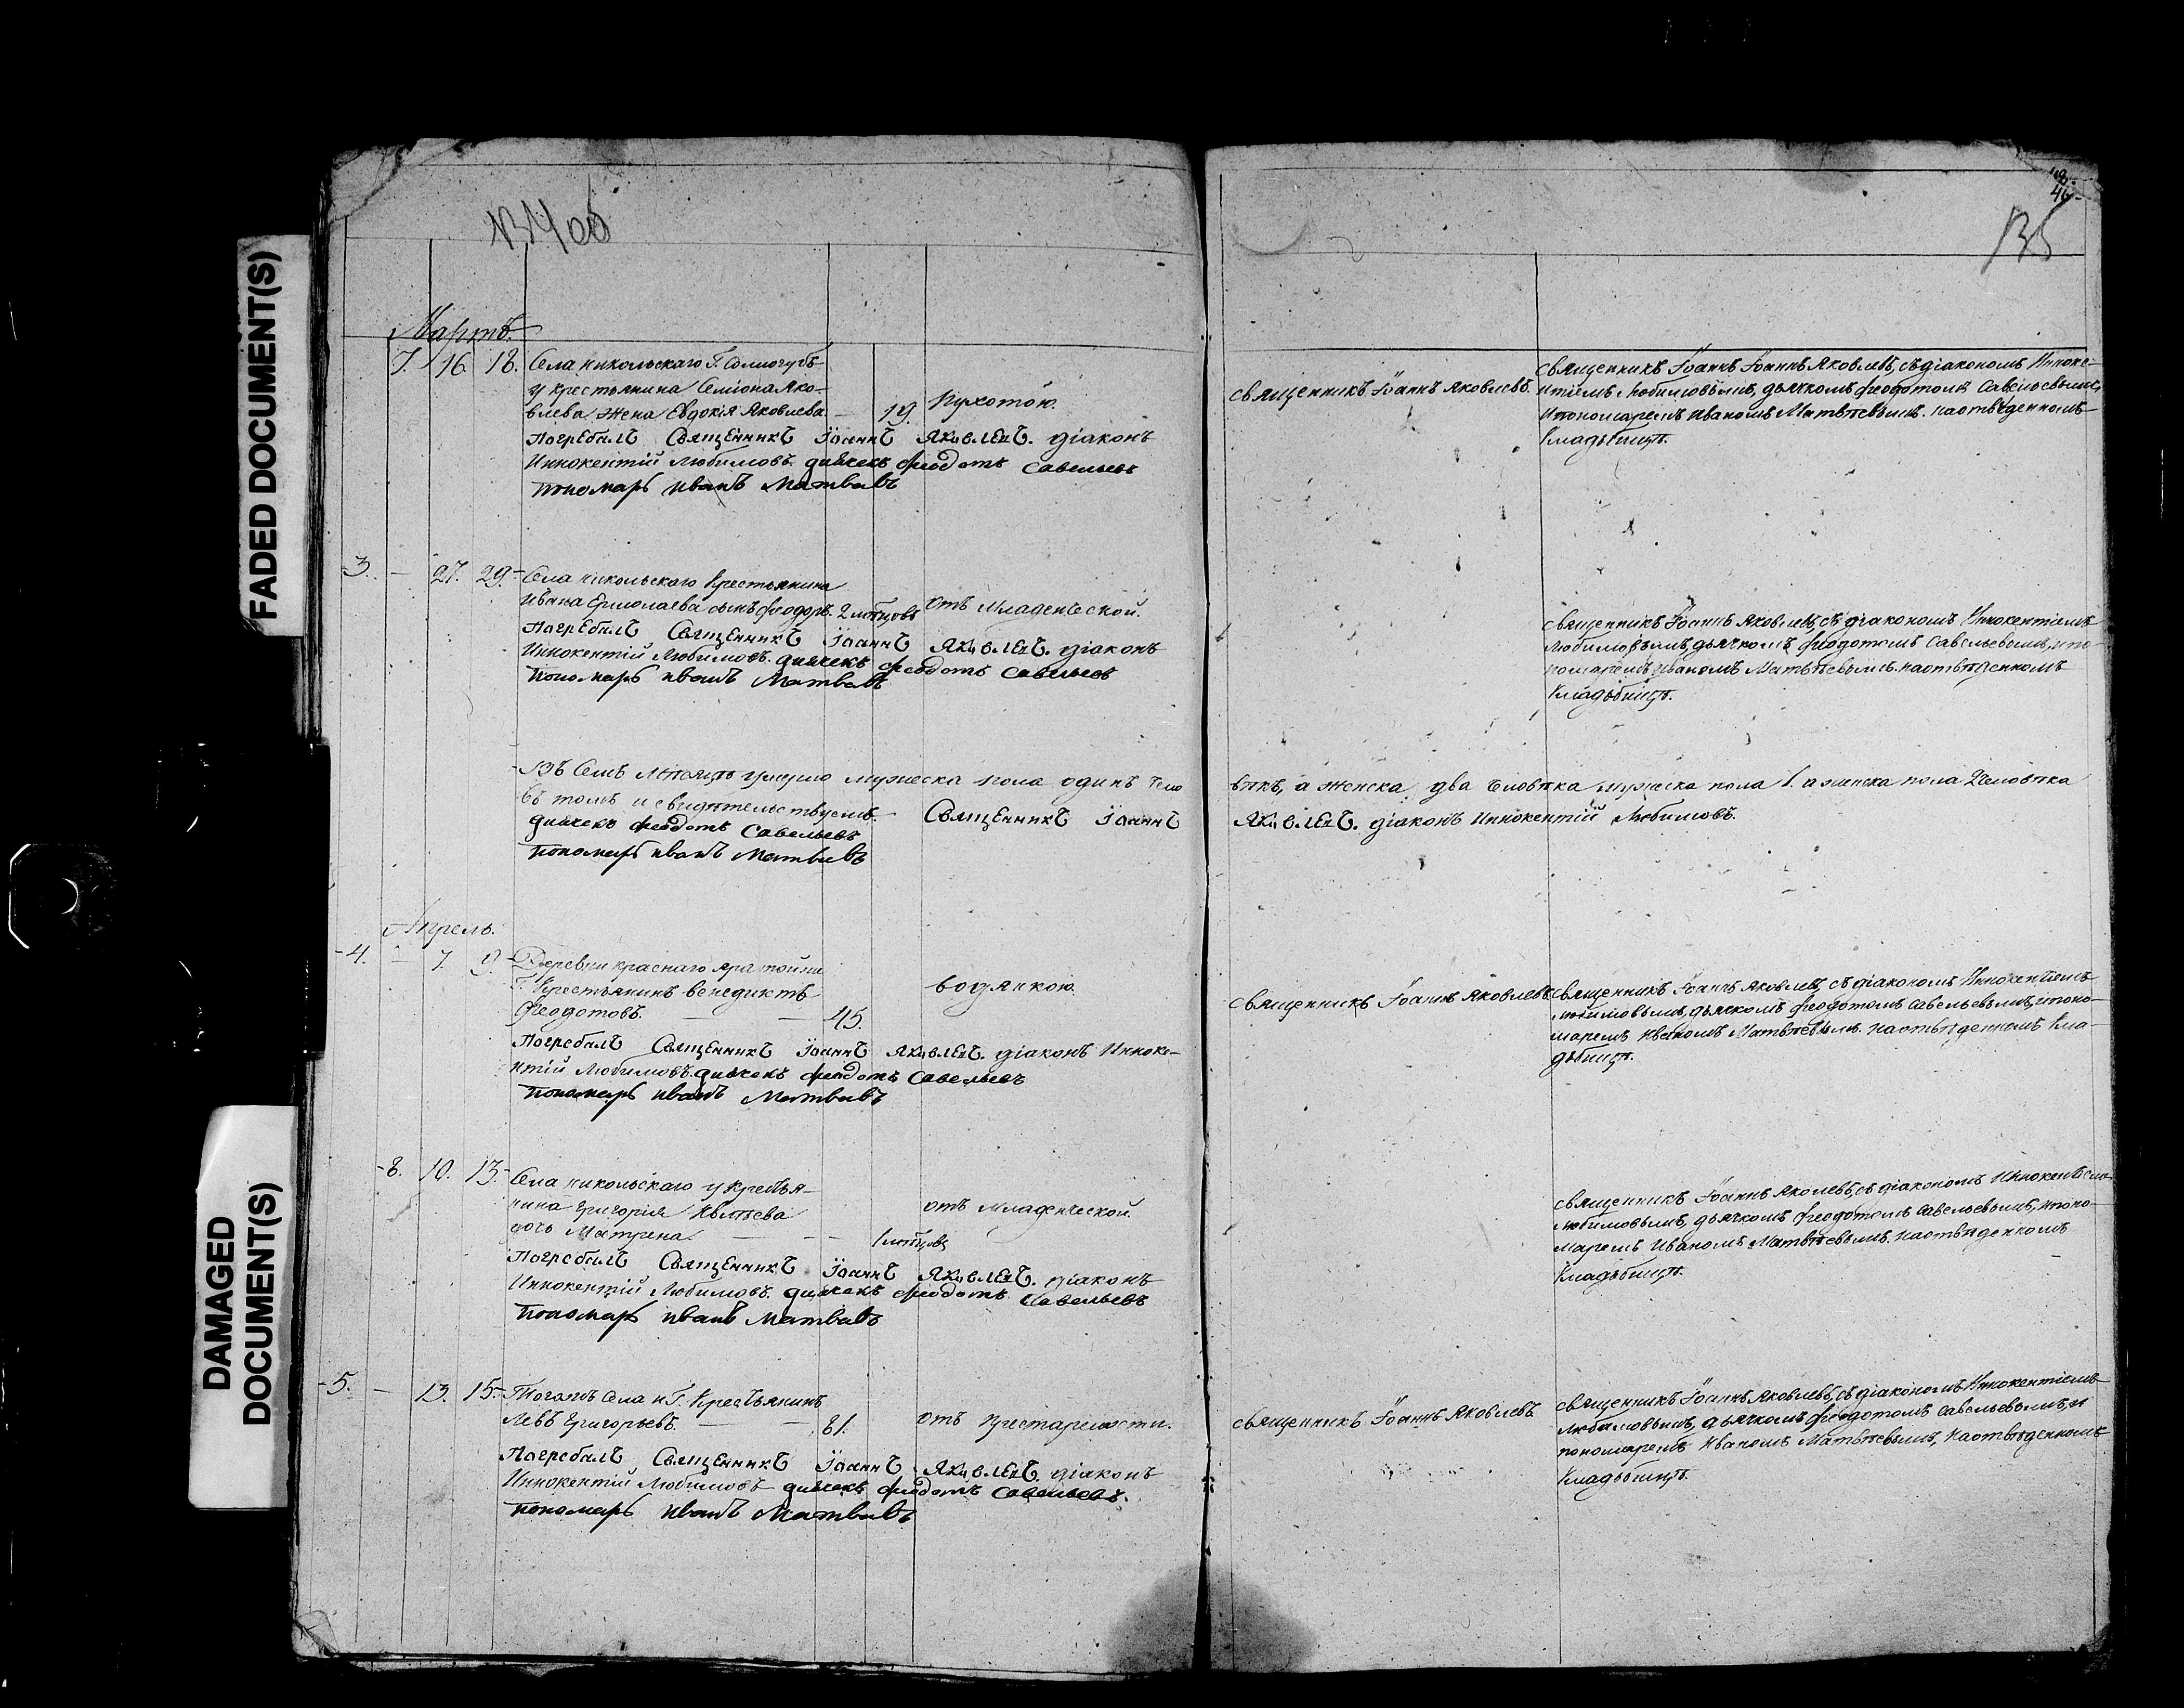 FADED DOCUMENT(S)
DAMAGED
DOCUMENT(S)
46
135
Мартъ.
7. 16 18. Села никольскаго Г.
у крестьянина Семіона Яко-
влева жена Евдокія Яковлева 19. Сухотою.
Погребалъ Священникъ Іоаннъ Яковлевъ. діаконъ
Иннокентій Любимовъ. дьячекъ феодотъ Савельевъ
пономарь иванъ Матвѣевъ
священникъ Іоаннъ Яковлевъ.
священникъ Іоаннъ Іоаннъ Яковлевъ, съ діакономъ Инноке-
нтіемъ Любимовымъ, дьячкомъ феодотомъ Савельевымъ,
и пономаремъ Иваномъ Матвѣевымъ. на отвѣденномъ
кладьбищѣ.
3. - 27. 29. Села никольскаго крестьянина
Ивана Ермолаева сынъ феодоръ. 2 мѣсяцовъ отъ младенческой.
Погребалъ Священникъ Іоаннъ Яковлевъ. діаконъ
Иннокентій Любимовъ. дьячекъ феодотъ Савельевъ
пономарь иванъ Матвѣевъ
священникъ Іоаннъ Яковлевъ, съ діакономъ Иннокентіемъ
Любимовымъ, дьячкомъ феодотомъ Савельевымъ, и по-
номаремъ Иваномъ Матвѣевымъ. на отвѣденномъ
кладьбищѣ.
Въ Семъ Мѣсяцѣ умерло мужеска пола одинъ чело
вѣкъ, а женска два человѣка мужеска пола 1. а женска пола 2 человѣка
въ томъ и свидѣтельствуемъ. Священникъ Іоаннъ
Яковлевъ. діаконъ Иннокентій Любимовъ.
дьячекъ феодотъ Савельевъ
пономарь иванъ Матвѣевъ
Апрель.
4. - 7. 9. Деревни краснаго яра
Г. Крестьянинъ венедиктъ
Феодотовъ. 45. водянкою.
Погребалъ Священникъ Іоаннъ Яковлевъ. діаконъ Инноке-
нтій Любимовъ. дьячекъ феодотъ Савельевъ
пономарь иванъ Матвѣевъ
священникъ Іоаннъ Яковлевъ
священникъ Іоаннъ Яковлевъ, съ діакономъ Иннокентіемъ
Любимовымъ, дьячкомъ феодотомъ Савельевымъ, и поно-
маремъ Иваномъ Матвѣевымъ. на отвѣденномъ кла-
дьбищѣ.
8. 10. 13. Села никольскаго у крестья-
нина григорія
дочь Матрена. 1 мѣсяцовъ отъ младенческой.
Погребалъ Священникъ Іоаннъ Яковлевъ. діаконъ
Иннокентій Любимовъ. дьячекъ феодотъ Савельевъ
пономарь иванъ Матвѣевъ
священникъ Іоаннъ Яковлевъ, съ діакономъ Иннокентіемъ
Любимовымъ, дьячкомъ феодотомъ Савельевымъ, и поно-
маремъ Иваномъ Матвѣевымъ. на отвѣденномъ
кладьбищѣ.
5. - 13. 15. Тогожъ села и Г. Крестьянинъ
Левъ григорьевъ. 81. отъ престарелости.
Погребалъ Священникъ Іоаннъ Яковлевъ. діаконъ
Иннокентій Любимовъ дьячекъ феодотъ Савельевъ.
пономарь иванъ Матвѣевъ
священникъ Іоаннъ Яковлевъ
священникъ Іоаннъ Яковлевъ, съ діакономъ Иннокентіемъ
Любимовымъ, дьячкомъ феодотомъ Савельевымъ, и
пономаремъ Иваномъ Матвѣевымъ, на отвѣденномъ
кладьбищѣ.